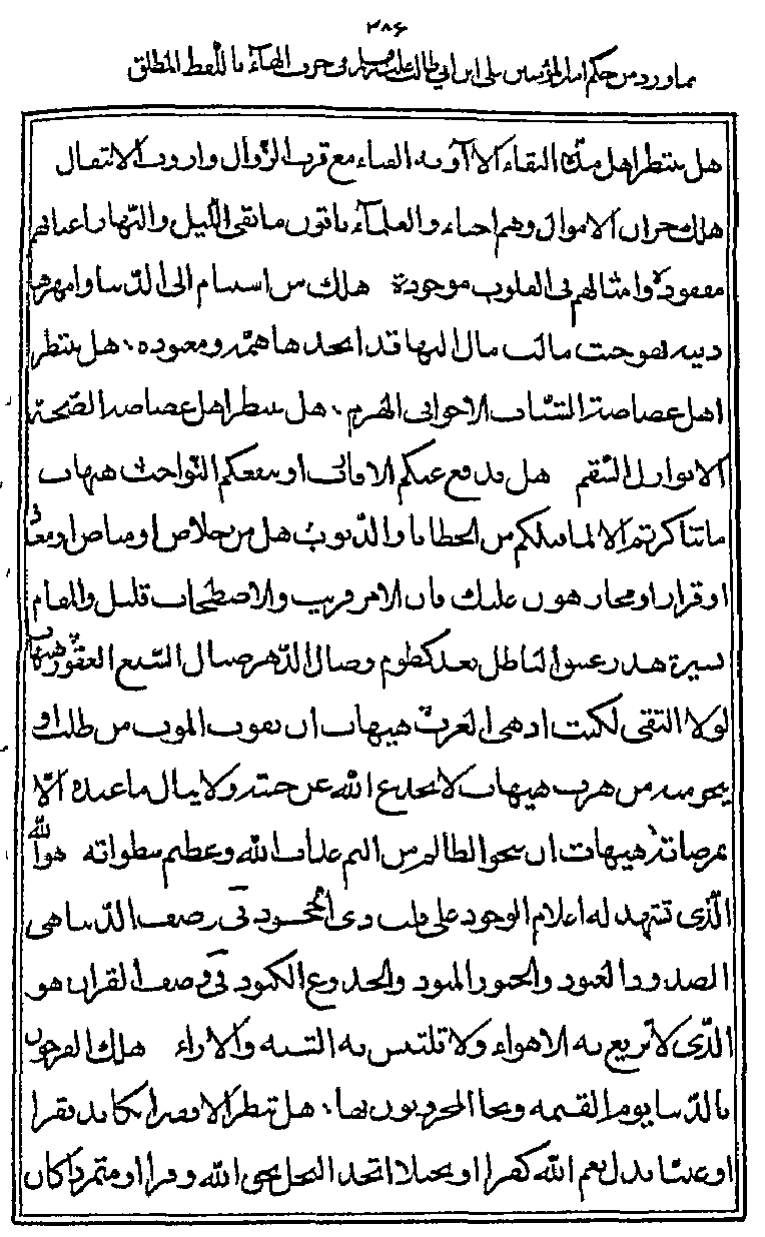 ۲۸۶
مما ورد من حكم امير المؤمنين علي ابن ابي طالب عليه السلام في حرف الهاء باللفظ المطلق
هل ينتظر اهل مدة البقاء الا آونة الفناء مع قرب الزوال وازوف الانتقال
هلك خزان الاموال وهم احياء والعلماء باقون ما بقى الليل والنهار اعيانهم
مفقودة وامثالهم في القلوب موجودة هلك من استنام الى الدنيا وامهرها
دينه فهو حيث مالت مال اليها قد اتخذها همه ومعبوده، هل ينتظر
اهل غضاضة الشباب الا حواني الهرم، هل ينتظر اهل غضاضة الصحة
الا نوازل السقم هل يدفع عنكم الاقارب او ينفعكم النواحب هيهات
ما تناكرتم الا لما قبلكم من الخطايا والذنوب هل من خلاص او مناص او معاذ
او قرار او محار هون عليك فان الامر قريب والاصطحاب قليل والمقام
يسير هدر فنيق الباطل بعد كظوم وصال الدهر صيال السبع العقور هيهات
لولا التقى لكنت ادهى العرب هيهات ان يفوت الموت من طلب او
ينجو منه من هرب هيهات لا يخدع الله عن جنته ولا ينال ما عنده الا
بمرضاته هيهات ان ينجو الظالم من اليم عذاب الله وعظيم سطواته هو الله
الذى تشهد له اعلام الوجود على قلب ذى الجحود في وصف الدنيا هى
الصدود العنود والحيود الميود والخدوع الكنود في وصف القران هو
الذى لا تزيغ به الاهواء ولا تلتبس به الشبه والاراء هلك الفرحون
بالدنيا يوم القيمة ونجا المحزونون بها، هل تنظر الا فقيرا يكابد فقرا
او غنيا بدل نعم الله كفرا او بخيلا اتخذ البخل بحق الله وفرا او متمردا كان